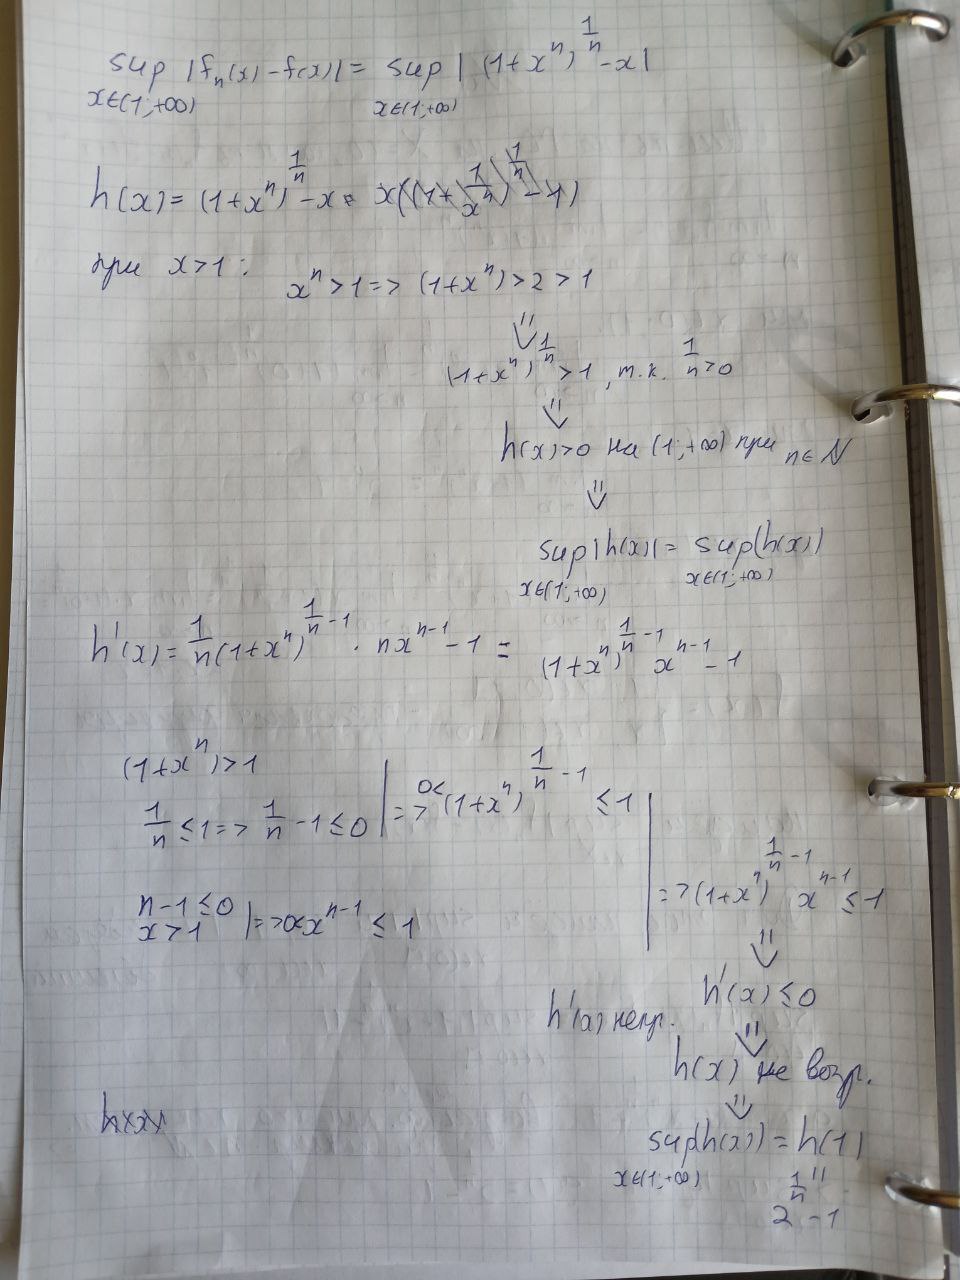 sup |fₙ(x) - f(x)| = sup | (1+xⁿ)^(1/n) - x |
x∈(1;+∞) x∈(1;+∞)
h(x) = (1+xⁿ)^(1/n) - x = x((1+1/xⁿ)^(1/n) - 1)
при x>1: xⁿ>1 => (1+xⁿ)>2>1
⇓
(1+xⁿ)^(1/n) >1, т.к. 1/n >0
⇓
h(x)>0 на (1;+∞) при n∈N
⇓
sup|h(x)| = sup(h(x))
x∈(1;+∞) x∈(1;+∞)
h'(x) = 1/n (1+xⁿ)^(1/n - 1) · nx^(n-1) - 1 = (1+xⁿ)^(1/n - 1) x^(n-1) - 1
(1+xⁿ)>1
1/n ≤ 1 => 1/n - 1 ≤ 0 | => 0< (1+xⁿ)^(1/n - 1) ≤ 1
n-1 ≤ 0
x>1 | => 0< x^(n-1) ≤ 1
| => (1+xⁿ)^(1/n - 1) x^(n-1) ≤ 1
⇓
h'(x) ≤ 0
h'(x) непр. ⇓
h(x) не возр.
⇓
sup(h(x)) = h(1)
x∈(1;+∞) ||
2^(1/n) - 1